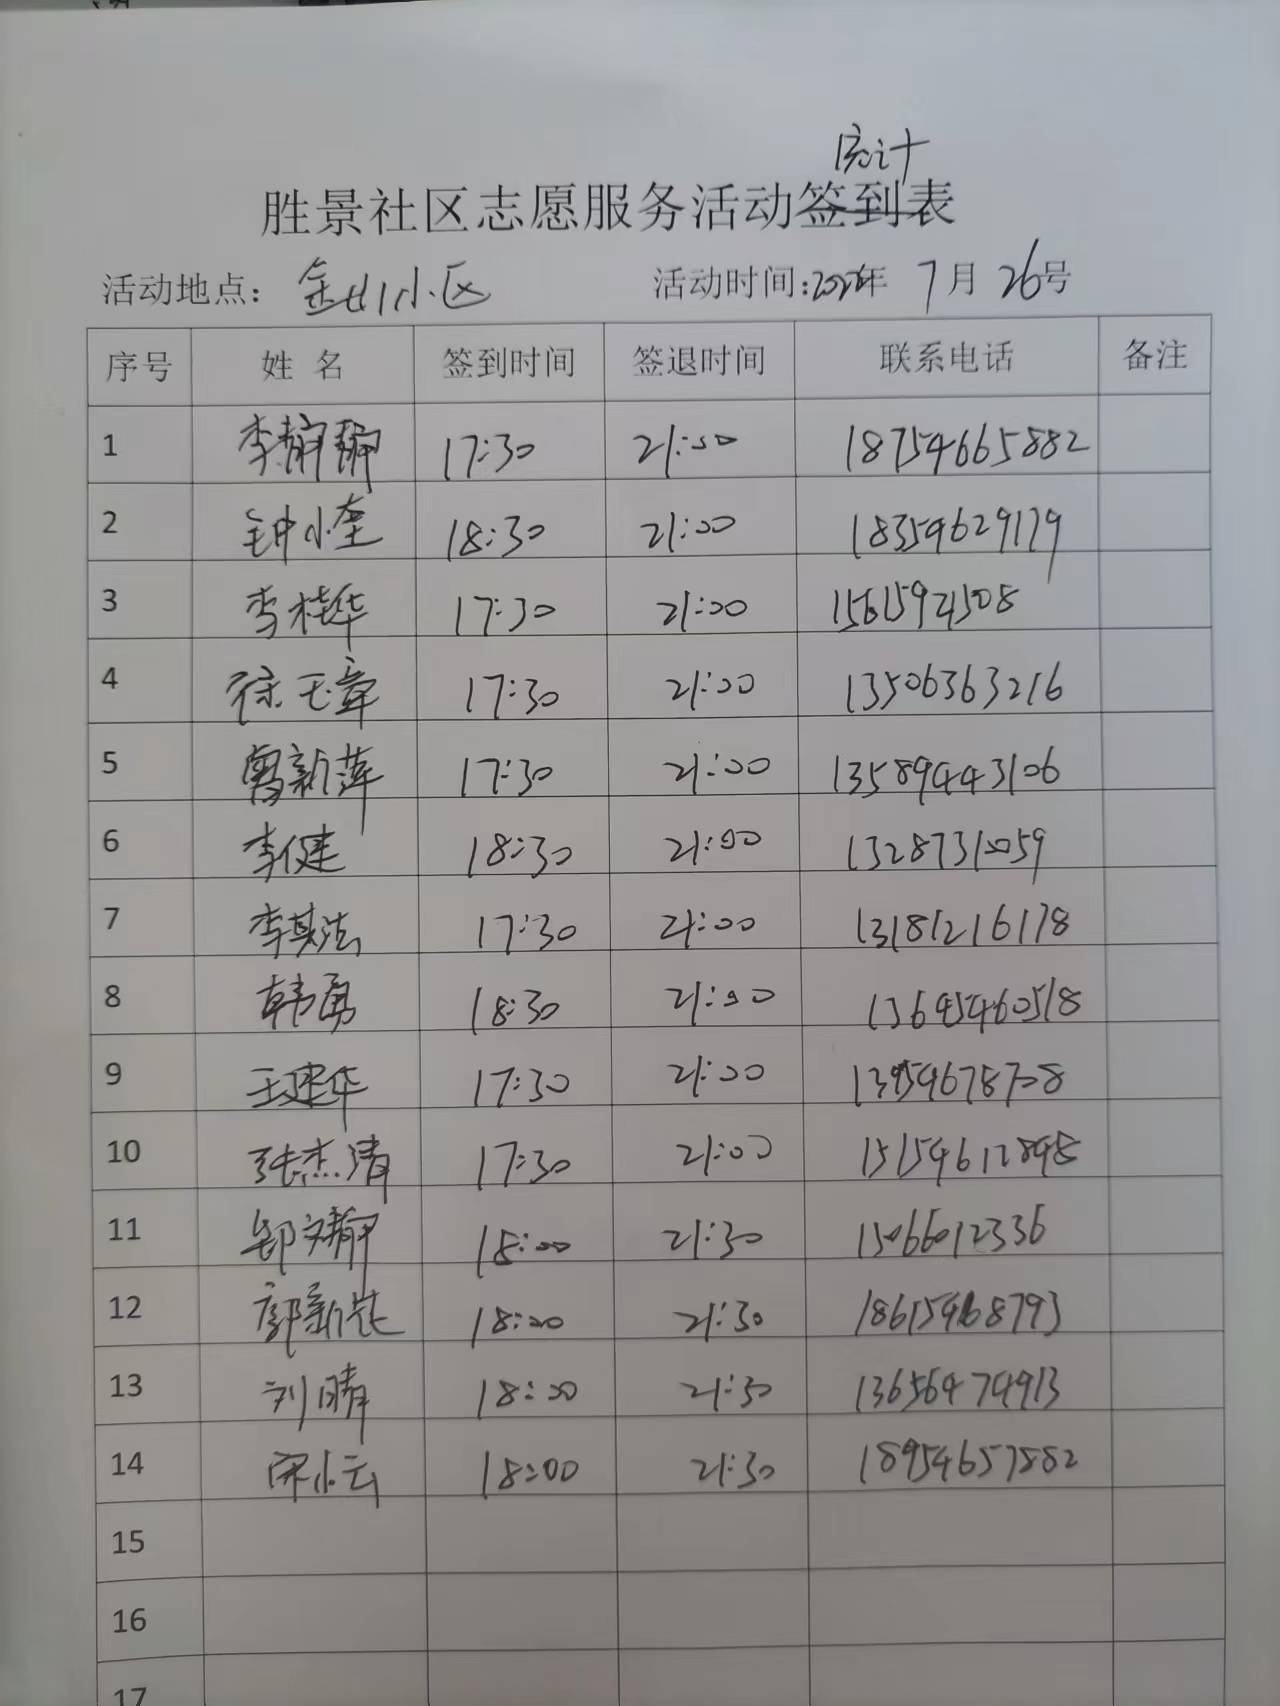 统计
胜景社区志愿服务活动签到表
活动地点： 小区 活动时间:2022年 7月 26号
序号 姓 名 签到时间 签退时间 联系电话 备注
1 李静 17:30 21:00 18754665882
2 钟小奎 18:30 21:00 18359629179
3 李桂华 17:30 21:00 15615921508
4 徐玉章 17:30 21:00 13506363216
5 新萍 17:30 21:00 13589443106
6 李健 18:30 21:00 13287310059
7 李其法 17:30 21:00 13181216178
8 韩勇 18:30 21:00 13645460518
9 王建华 17:30 21:00 13954678708
10 张杰清 17:30 21:00 15154612898
11 郭文静 18:00 21:30 15066012336
12 郭新 18:00 21:30 18615468793
13 刘晴 18:00 21:30 13656474913
14 宋小云 18:00 21:30 18954657882
15
16
17